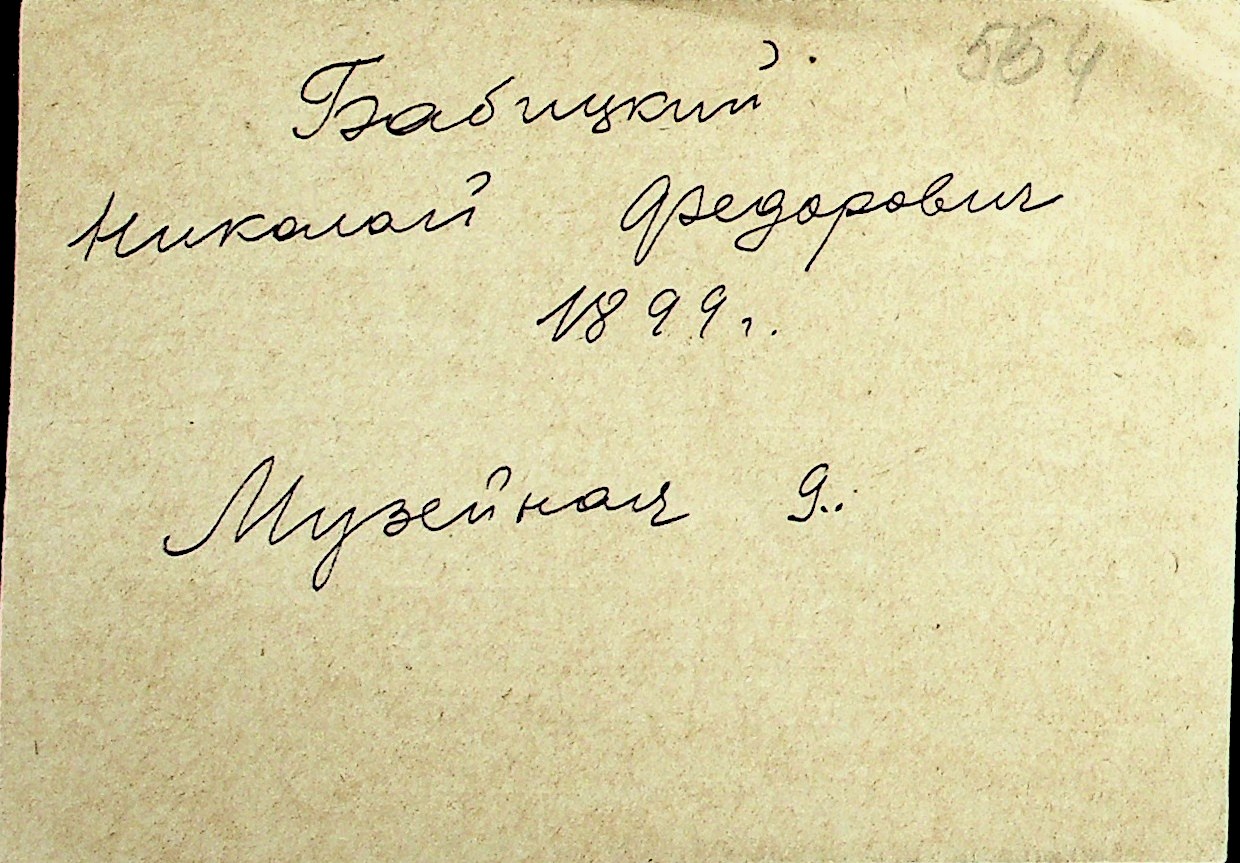 564
Бабицкий
Николай Федорович
1899 г.
Музейная 9.